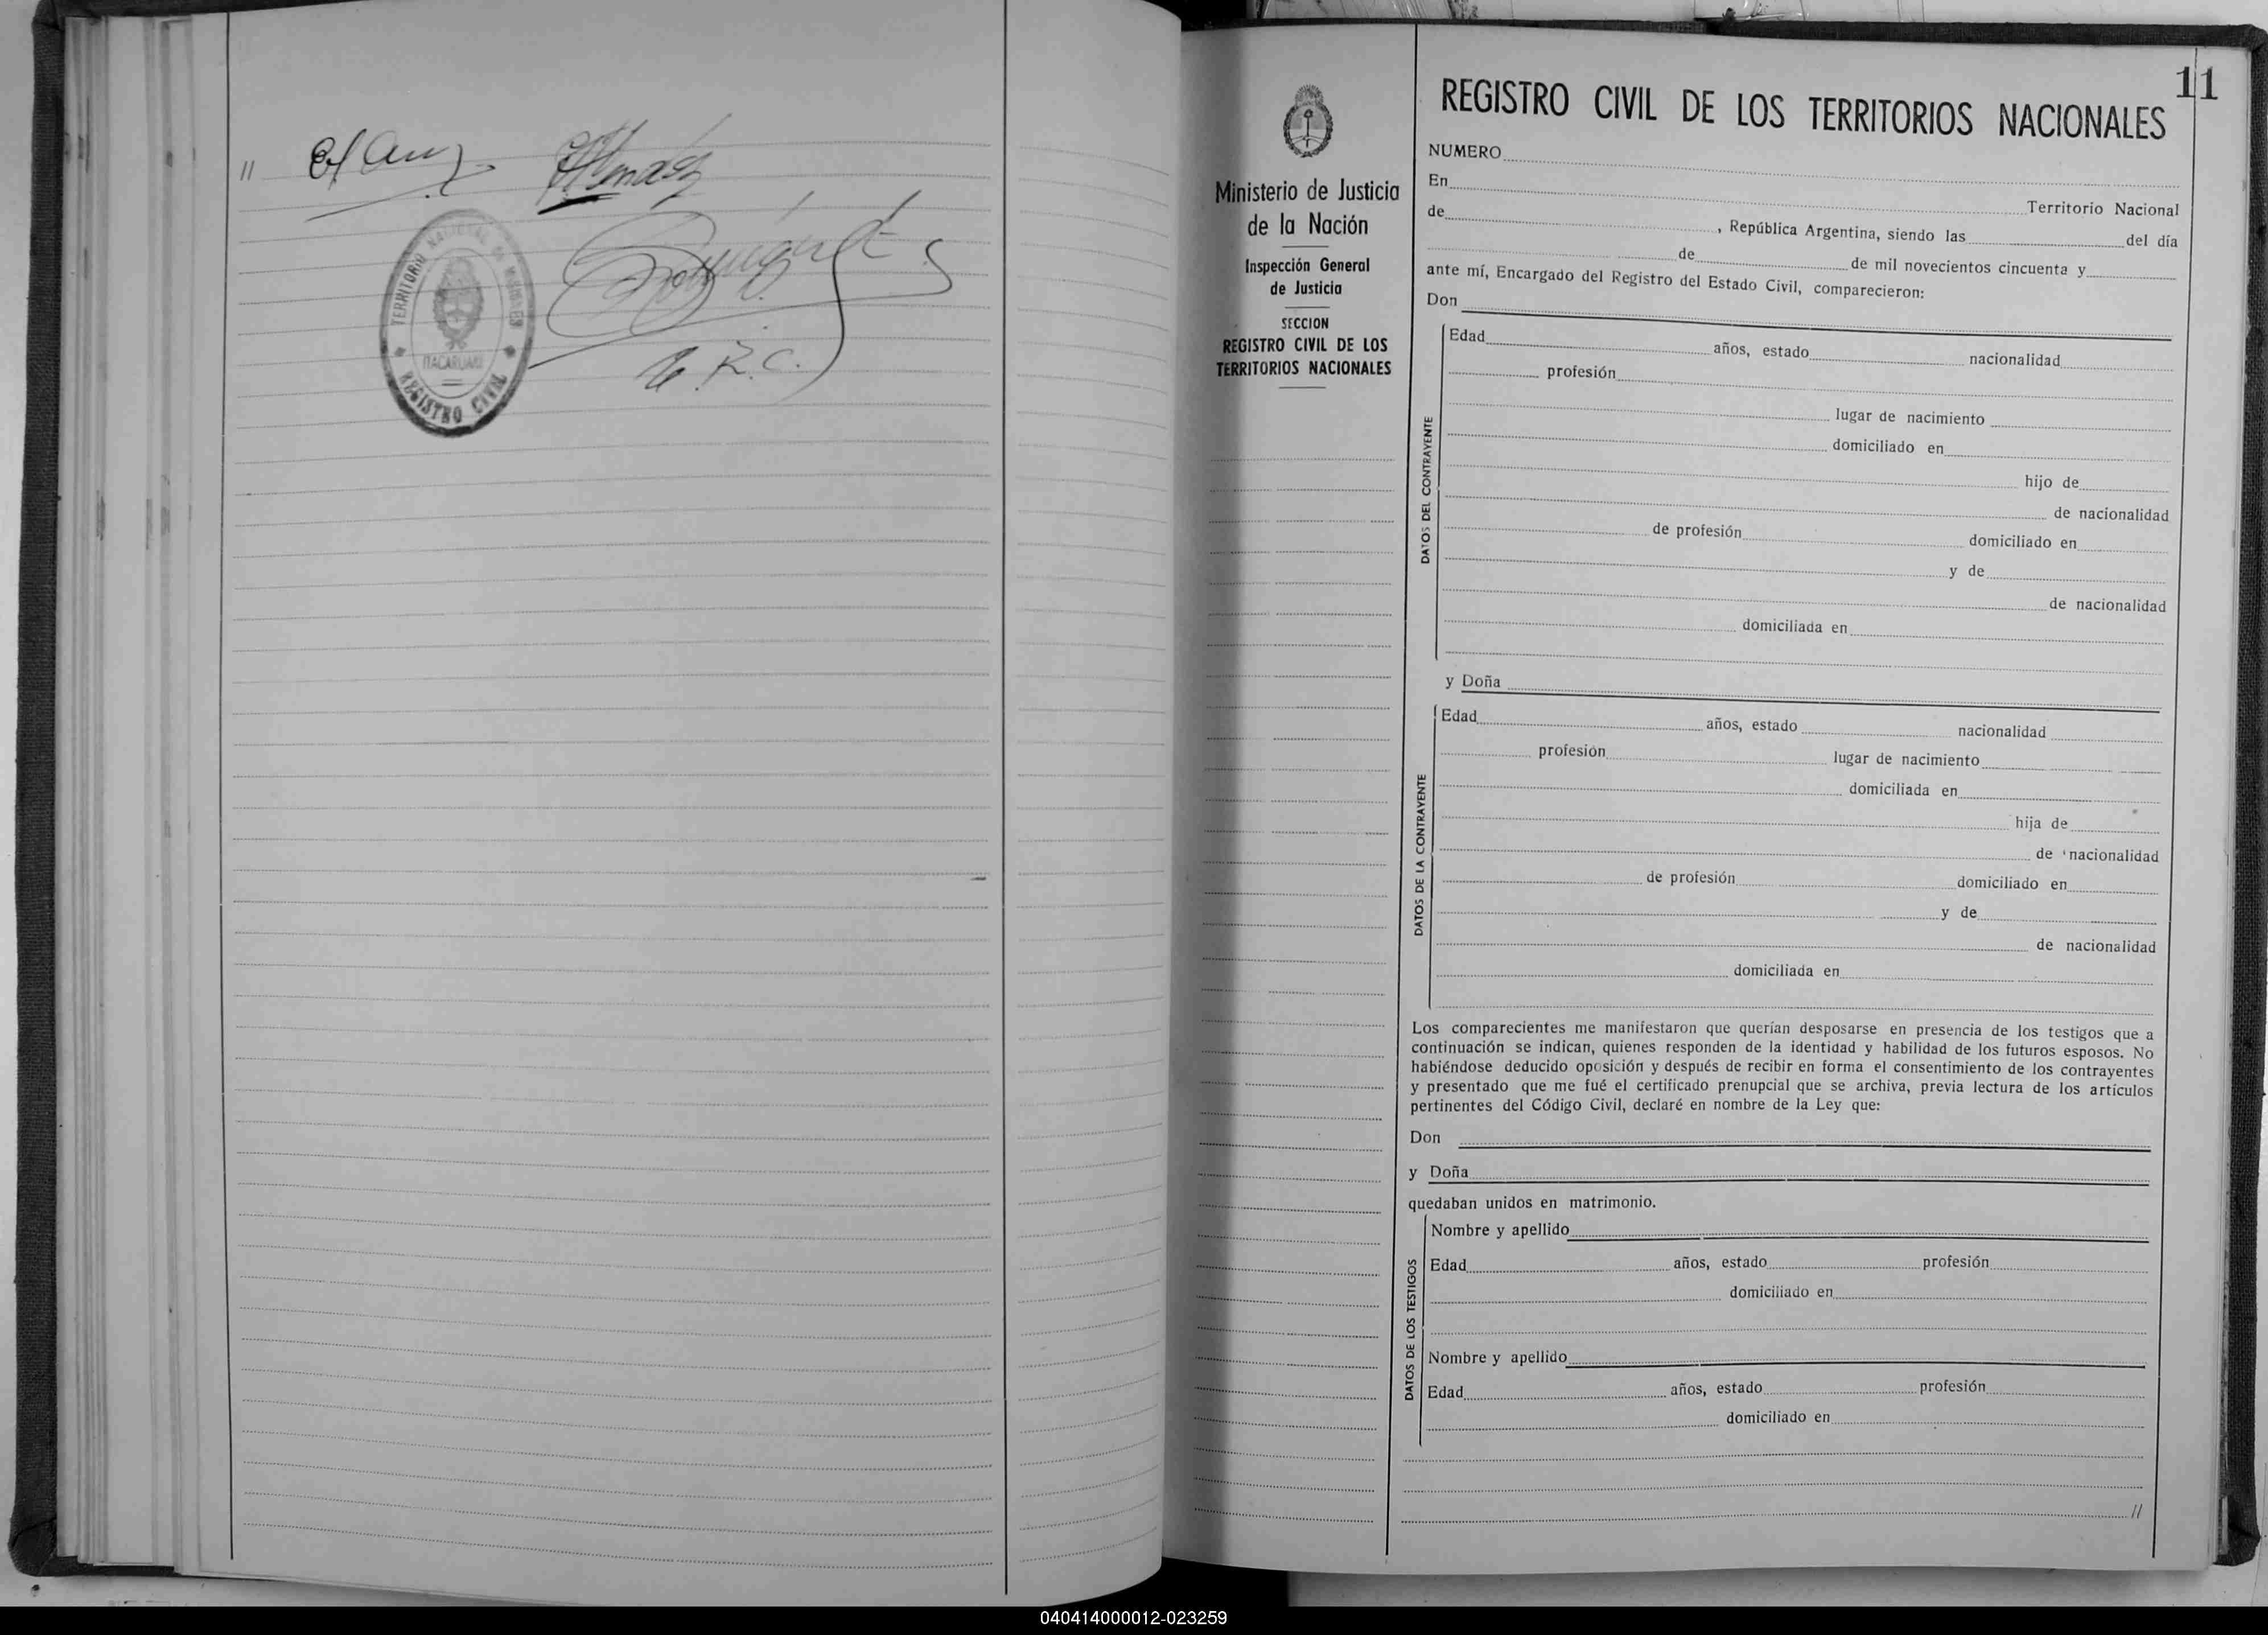 //
TERRITORIO NACIONAL DE MISIONES
ITACARUARE
REGISTRO CIVIL
E. R. C.
11
Ministerio de Justicia
de la Nación
Inspección General
de Justicia
SECCION
REGISTRO CIVIL DE LOS
TERRITORIOS NACIONALES
REGISTRO CIVIL DE LOS TERRITORIOS NACIONALES
NUMERO
En Territorio Nacional
de , República Argentina, siendo las del día
de de mil novecientos cincuenta y
ante mí, Encargado del Registro del Estado Civil, comparecieron:
Don
DATOS DEL CONTRAYENTE
Edad años, estado nacionalidad
profesión
lugar de nacimiento
domiciliado en
hijo de
de nacionalidad
de profesión domiciliado en
y de
de nacionalidad
domiciliada en
y Doña
DATOS DE LA CONTRAYENTE
Edad años, estado nacionalidad
profesión lugar de nacimiento
domiciliada en
hija de
de nacionalidad
de profesión domiciliado en
y de
de nacionalidad
domiciliada en
Los comparecientes me manifestaron que querían desposarse en presencia de los testigos que a
continuación se indican, quienes responden de la identidad y habilidad de los futuros esposos. No
habiéndose deducido oposición y después de recibir en forma el consentimiento de los contrayentes
y presentado que me fué el certificado prenupcial que se archiva, previa lectura de los artículos
pertinentes del Código Civil, declaré en nombre de la Ley que:
Don
y Doña
quedaban unidos en matrimonio.
DATOS DE LOS TESTIGOS
Nombre y apellido
Edad años, estado profesión
domiciliado en
Nombre y apellido
Edad años, estado profesión
domiciliado en
//
040414000012-023259